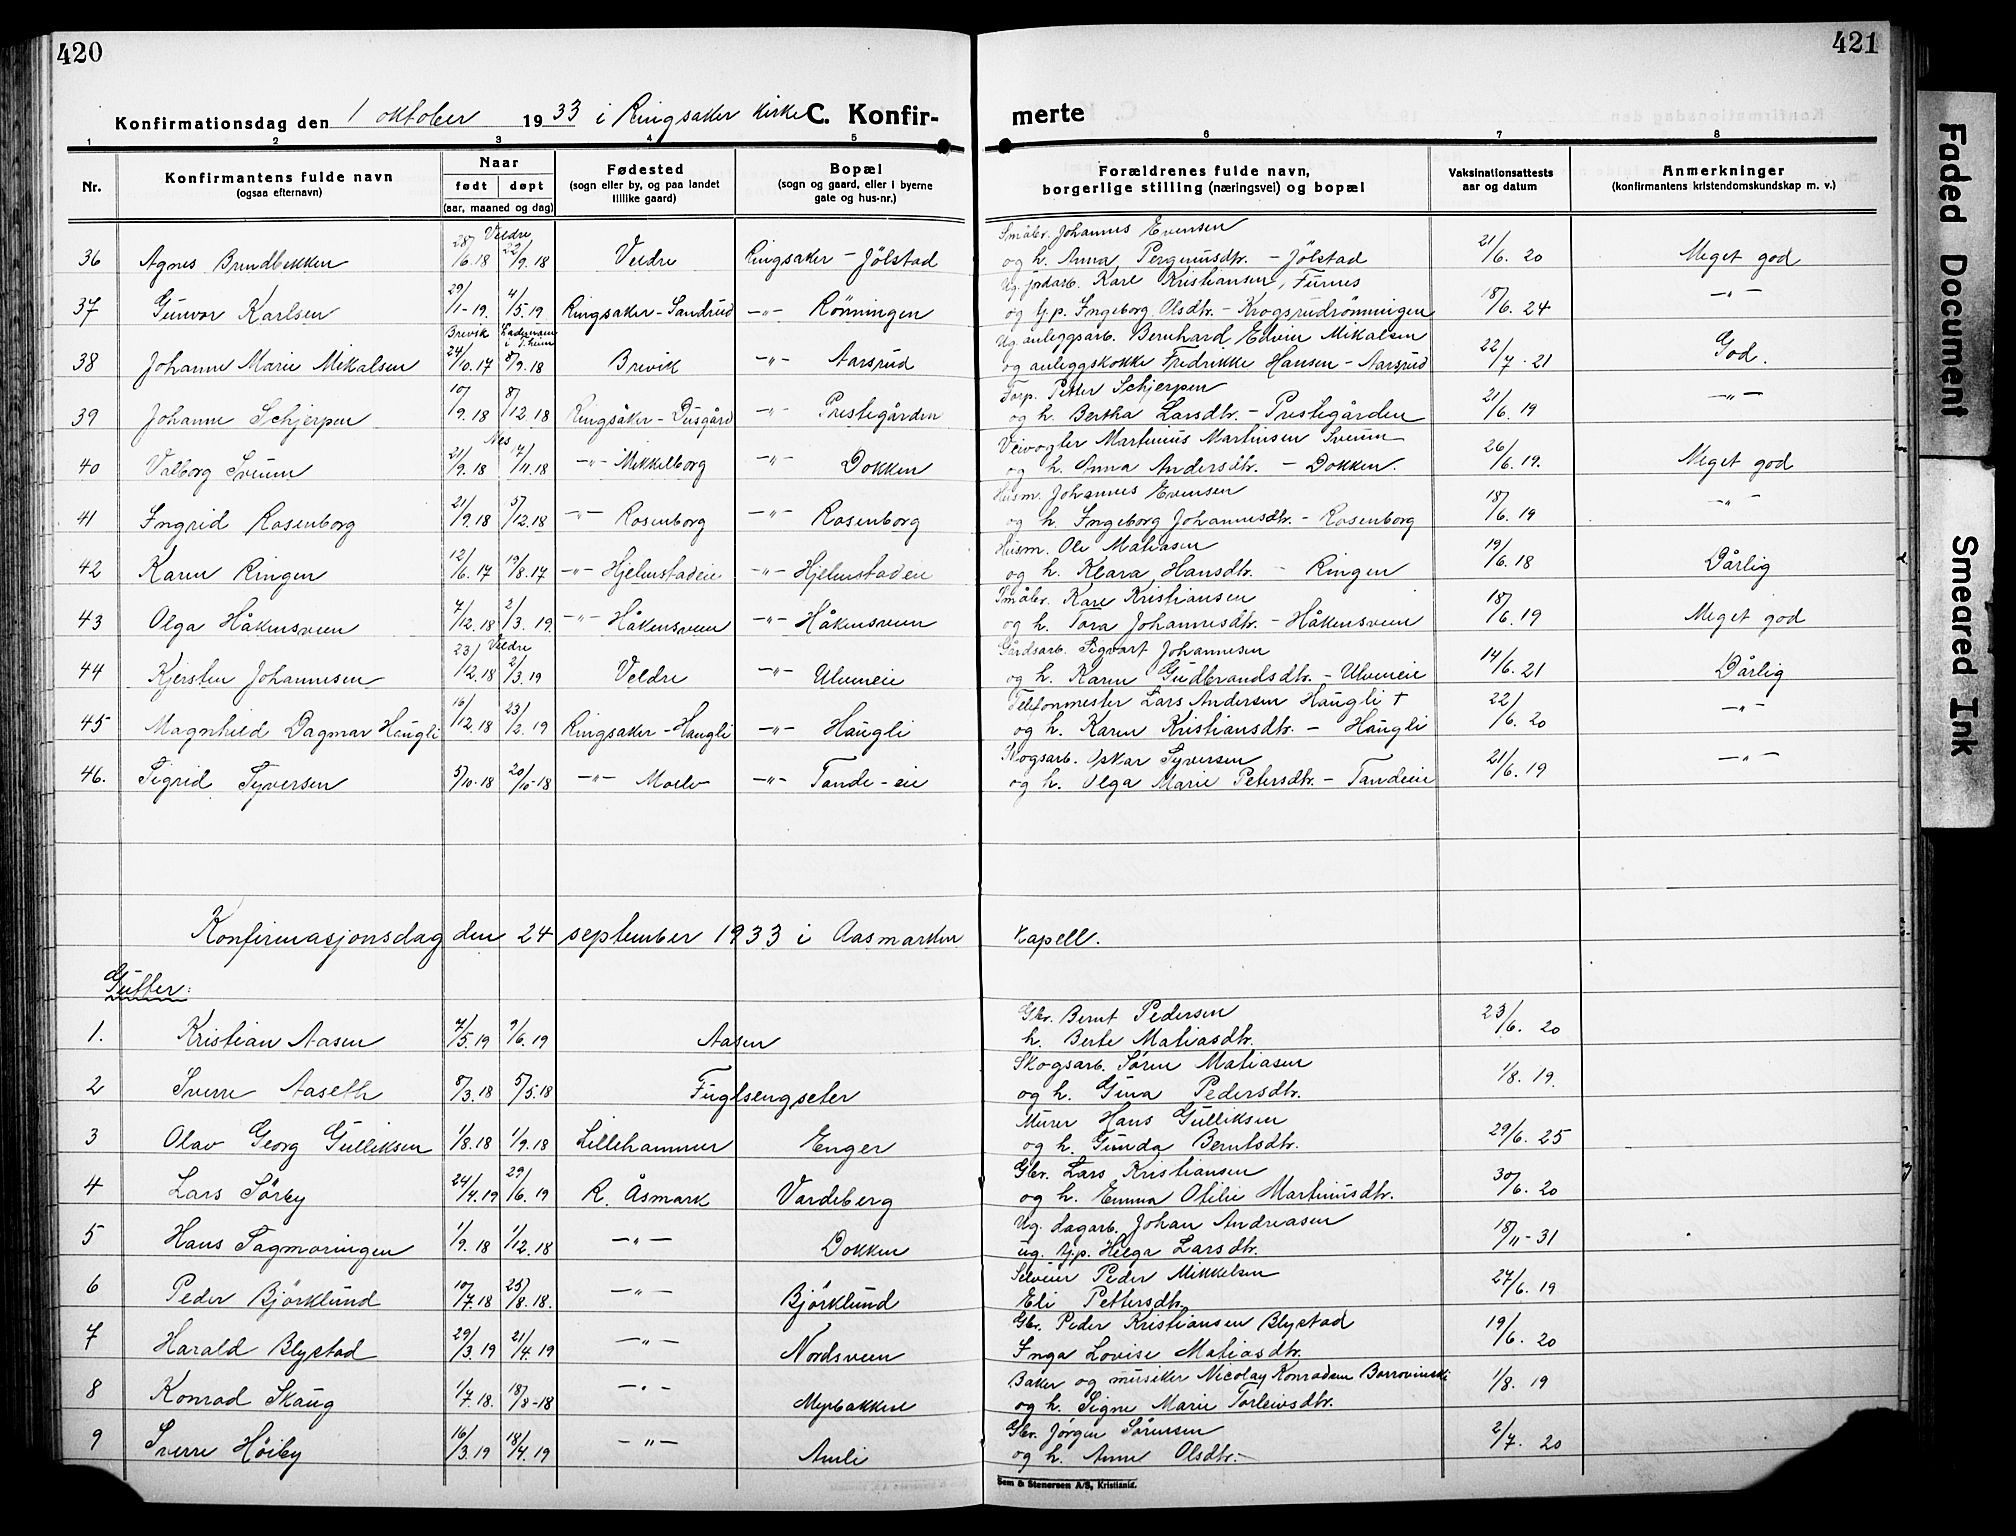 420
421
Konfirmationsdag den 1 oktober 1933 i Ringsaker kirke C. Konfirmerte
1 2 3 4 5 6 7 8
Nr.
Konfirmantens fulde navn (ogsaa efternavn)
Naar født døpt (aar, maaned og dag)
Fødested (sogn eller by, og paa landet tillike gaard)
Bopæl (sogn og gaard, eller i byerne gate og hus-nr.)
Forældrenes fulde navn, borgerlige stilling (næringsvei) og bopæl
Vaksinationsattests aar og datum
Anmerkninger (konfirmantens kristendomskundskap m. v.)
36 Agnes Brundbekken 28/6.18 Veldre 22/9.18 Veldre Ringsaker - Jölstad Småbr. Johannes Evensen og h. Anna Pergmusdtr. - Jölstad 21/6.20 Meget god
37 Gunvor Karlsen 29/1-19. 4/5.19 Ringsaker - Sandrud -"- Rønningen Ug. jordarb. Karl Kristiansen, Furnes og tjp. Ingeborg Olsdtr. - Krogsrudrønningen 18/6.24 -"-
38 Johanne Marie Mikalsen Brevik 24/10.17 Lademoen i T.heim 8/9.18 Brevik -"- Aarsrud Ug. anleggsarb. Bernhard Edvin Mikalsen og anleggskokke Fredrikke Hansen - Aarsrud 22/7-21 God.
39 Johanne Schjerpen 10/9.18 8/12.18 Ringsaker - Dusgård -"- Prestegården Forp. Petter Schjerpen og h. Bertha Larsdtr. - Prestegården 21/6.19 -"-
40 Valborg Sveum 21/9.18 Nes 17/11.18 -"- Mikkelborg -"- Dokken Veivogter Martinius Martinsen Sveum og h. Anna Andersdtr. - Dokken. 26/6.19. Meget god
41 Ingrid Rosenborg 21/9.18 5/12.18 -"- Rosenborg -"- Rosenborg Husm. Johannes Evensen og h. Ingeborg Johannesdtr. - Rosenborg 18/6.19 -"-
42 Karen Ringen 12/6.17 19/8.17 -"- Hjelmstadeie -"- Hjelmstadeie Husm. Ole Matiasen og h. Klara Hansdtr. - Ringen 19/6.18 Dårlig
43 Olga Håkensveen 7/12.18 2/3.19. -"- Håkensveen -"- Håkensveen Småbr. Karl Kristiansen og h. Tora Johannesdtr. - Håkensveen 18/6.19 Meget god
44 Kjersten Johannesen 23/12.18 Veldre 2/3.19 Veldre -"- Ulveneie Gårdsarb. Sigvart Johannesen og h. Karen Gudbrandsdtr. - Ulveneie 14/6.21 Dårlig
45 Magnhild Dagmar Haugli 16/12.18 23/2.19 Ringsaker - Haugli -"- Haugli Telefonmester Lars Andersen Haugli † og h. Karen Kristiansdtr. - Haugli 22/6.20 -"-
46. Sigrid Syversen 5/10-18 20/10-18 -"- Moelv -"- Tande-eie Skogsarb. Oskar Syversen og h. Olga Marie Petersdtr. - Tandeeie 21/6.19 -"-
Konfirmasjonsdag den 24 september 1933 i Aasmarken kapell.
Gutter:
1. Kristian Aasen 7/5.19 9/6.19 Aasen Gbr. Bernt Pedersen h. Berte Matiasdtr. 23/6.20
2 Sverre Aaseth 8/3.18 5/5.18 Fuglsengseter Skogsarb. Søren Matiasen og h. Gina Pedersdtr. 1/8.19.
3 Olav Georg Gulliksen 1/8.18 1/9.18 Lillehammer Enger Murer Hans Gulliksen og h. Gunda Berntsdtr. 29/6.25
4 Lars Sörby 24/4.19 29/6.19 R. Åsmark Vardeberg Gbr. Lars Kristiansen og h. Emma Otilie Martinusdtr. 30/6.20
5 Hans Sagmoringen 1/9.18 1/12.18 -"- Dokken Ug. dagarb. Johan Andreasen ug. tjp. Helga Larsdtr. 18/11-31
6 Peder Björklund 10/7.18 25/8.18. -"- Björklund Selveier Peder Mikkelsen Eli Pettersdtr. 27/6.19
7 Harald Blystad 29/3.19 21/4.19 -"- Nordsveen Gbr. Peder Kristiansen Blystad Inga Lovise Matiasdtr. 19/6.20
8 Konrad Skaug 1/7.18. 18/8-18 -"- Myrbakken Baker og musiker Nicolay Konradsen Borrovinski og h. Signe Marie Torleivsdtr. 1/8.19
9 Sverre Höiby 16/3.19 18/4.19 -"- Amli Gbr. Jørgen Sørensen og h. Anne Olsdtr. 2/7.20
Sem & Stenersen A/S, Kristiania.
Faded Document
Smeared Ink